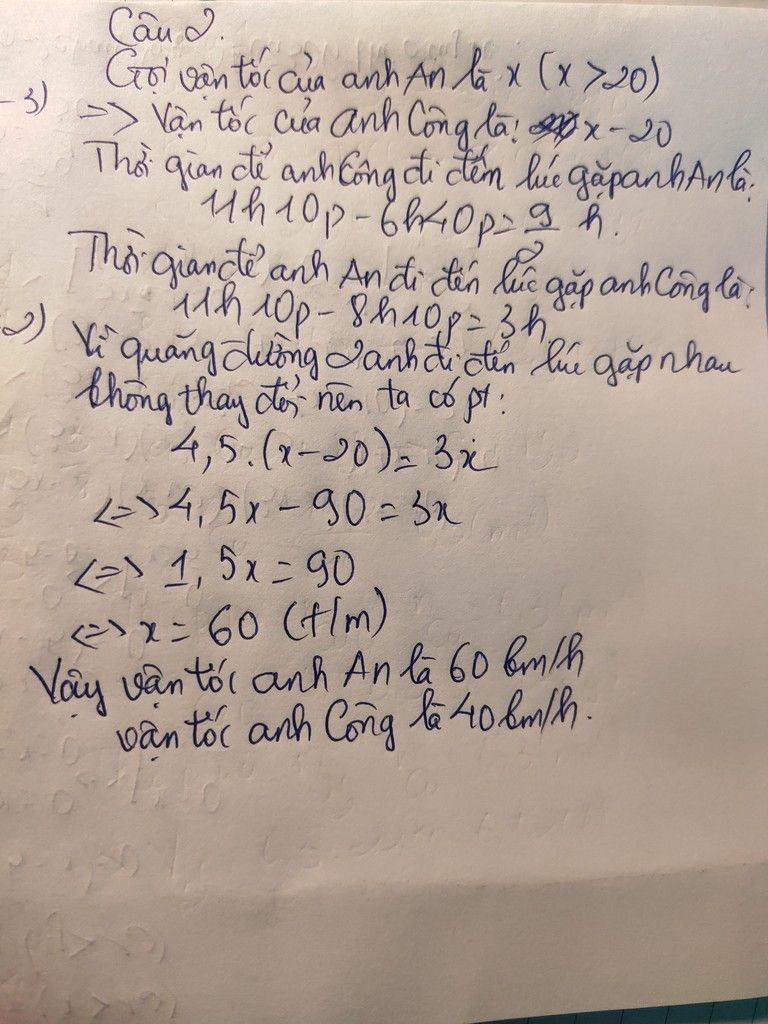 Câu 2.
Gọi vận tốc của anh An là x (x > 20)
- 3)
=> Vận tốc của anh Công là: x - 20
Thời gian để anh Công đi đến lúc gặp anh An là:
11h10p - 6h40p = 9/2 h.
Thời gian để anh An đi đến lúc gặp anh Công là:
11h10p - 8h10p = 3h
2)
Vì quãng đường 2 anh đi đến lúc gặp nhau
không thay đổi nên ta có pt:
4,5.(x-20) = 3x
<=> 4,5x - 90 = 3x
<=> 1,5x = 90
<=> x = 60 (t/m)
Vậy vận tốc anh An là 60 km/h
vận tốc anh Công là 40 km/h.